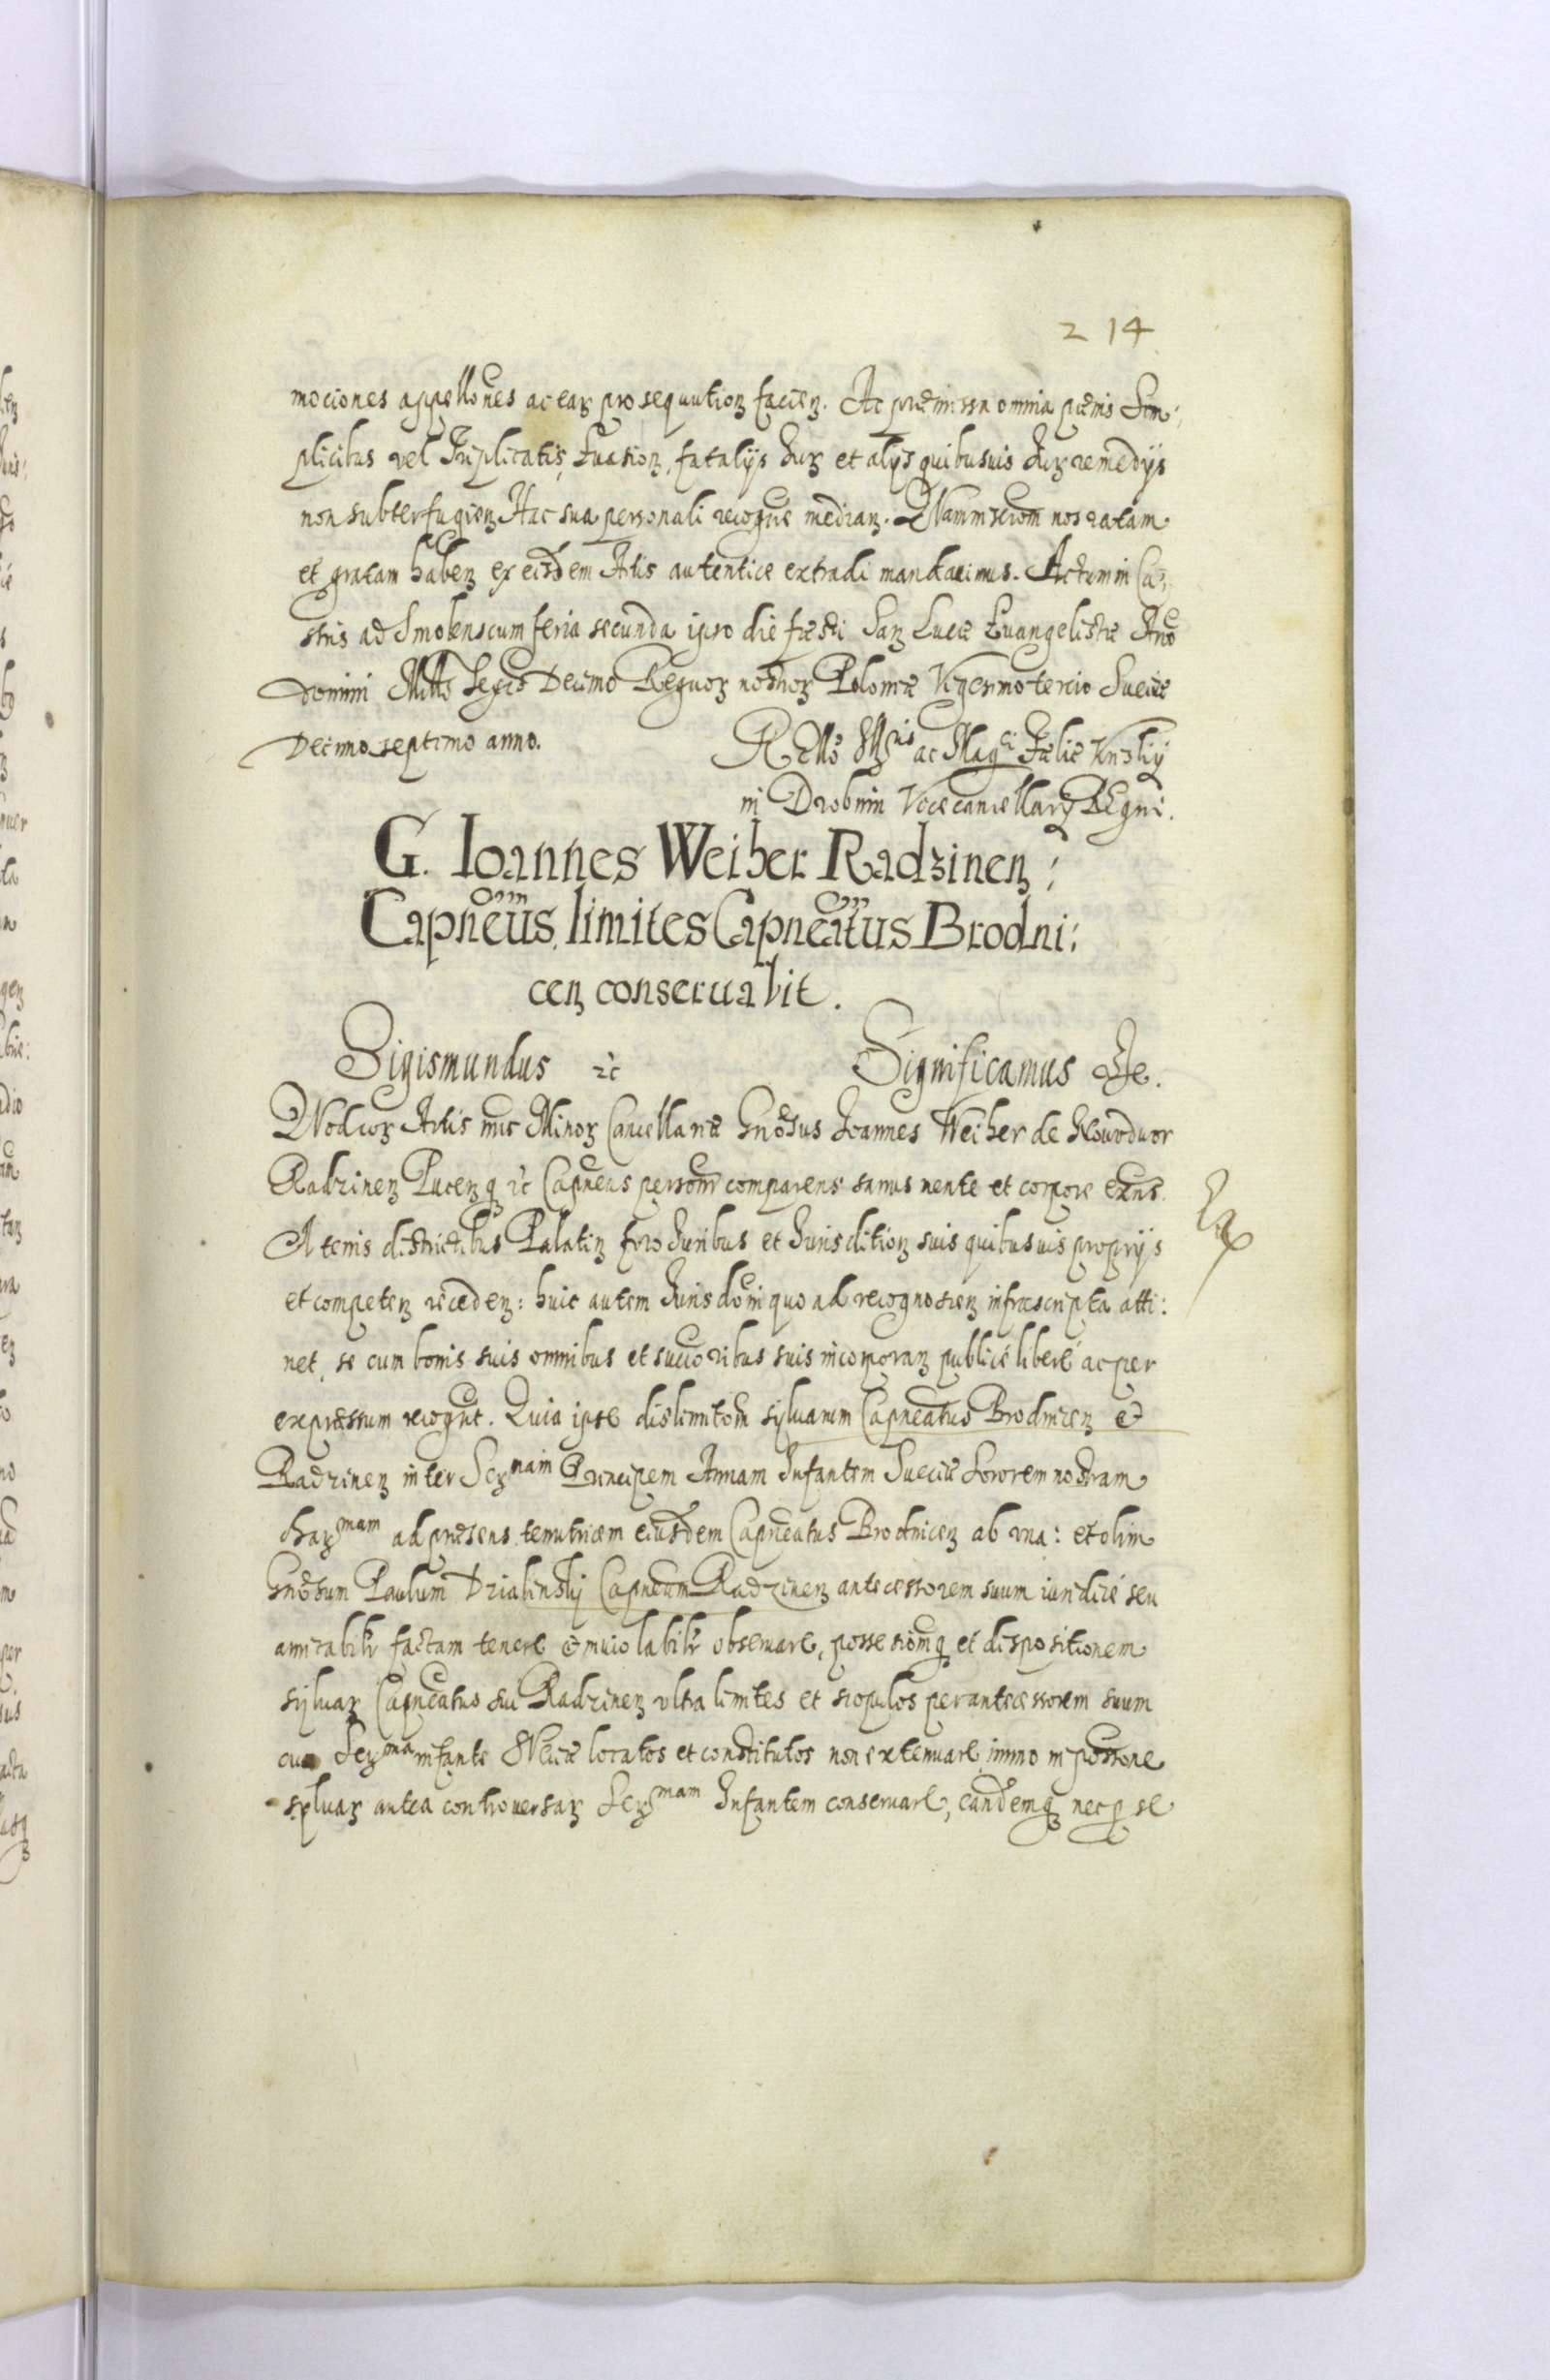 214
mociones appellones ac earʒ prosequutionʒ facienʒ. Ac præmissa omnia pœnis Sim:
plicibus vel Triplicatis, Euasionʒ, fatalijs Jurʒ et alijs quibusuis Jurʒ remedijs
non subterfugienʒ Hac sua personali recogne medianʒ. QVam nos ratam
et gratam habenʒ ex eisdem Actis autentice extradi mandauimus. Actum in Ca:
stris ad Smolenscum feria secunda ipso die fæsti Sanʒ Lucæ Euangelistæ Ano
Domini Millo Sexco Decimo Regnorʒ nostrorʒ Poloniæ Vigesmo tercio Sueciæ
Decimo septimo anno.
Rello Illris ac Magci Fælicis Kryskij
in Drobnin Vicecancellarij REgni.
G. Ioannes Weiher Radzinenʒ:
Capneus limites Capneatus Brodni:
cenʒ conseruabit.
Sigismundus ꝛc Significamus ꝛc.
QVod corʒ Actis nris Minorʒ Cancellariæ Gnosus Joannes Weiher de Nouodwor
Radzinenʒ Pucenʒq ꝛc Capneus personr comparens sanus mente et corpore exns.
A terris districtibus Palatinʒ foro Juribus et Jurisditionʒ suis quibusuis proprijs
et competenʒ recedenʒ: huic autem Jurisdoni quo ad recognoscenʒ infrascripta atti:
net, se cum bonis suis omnibus et succoribus suis incorporanʒ publicé liberé ac per
expressum recognt. Quia ipse dislimitom syluarum Capneatus Brodnicenʒ et
Radzinenʒ inter Serʒmam Principem Annam Infantem Sueciæ Sororem nostram
charʒmam ad præsens tenutricem eiusdem Capneatus Brodnicenʒ ab vna: et olim
Gnosum Paulum Dzialinskij Capneum Radzinenʒ antecessorem suum iuridicé seu
amicabilr factam tenere et inuiolabilr obseruare, possesiomq et dispositionem
syluarʒ Capneatus sui Radzinenʒ vltra limites et scopulos per antecessorem suum
cum Serʒma infante SVeciæ locatos et constitutos non extenuare, immo in possone
syluarʒ antea controuersarʒ Serʒmam Infantem conseruare, eandemq nec p se